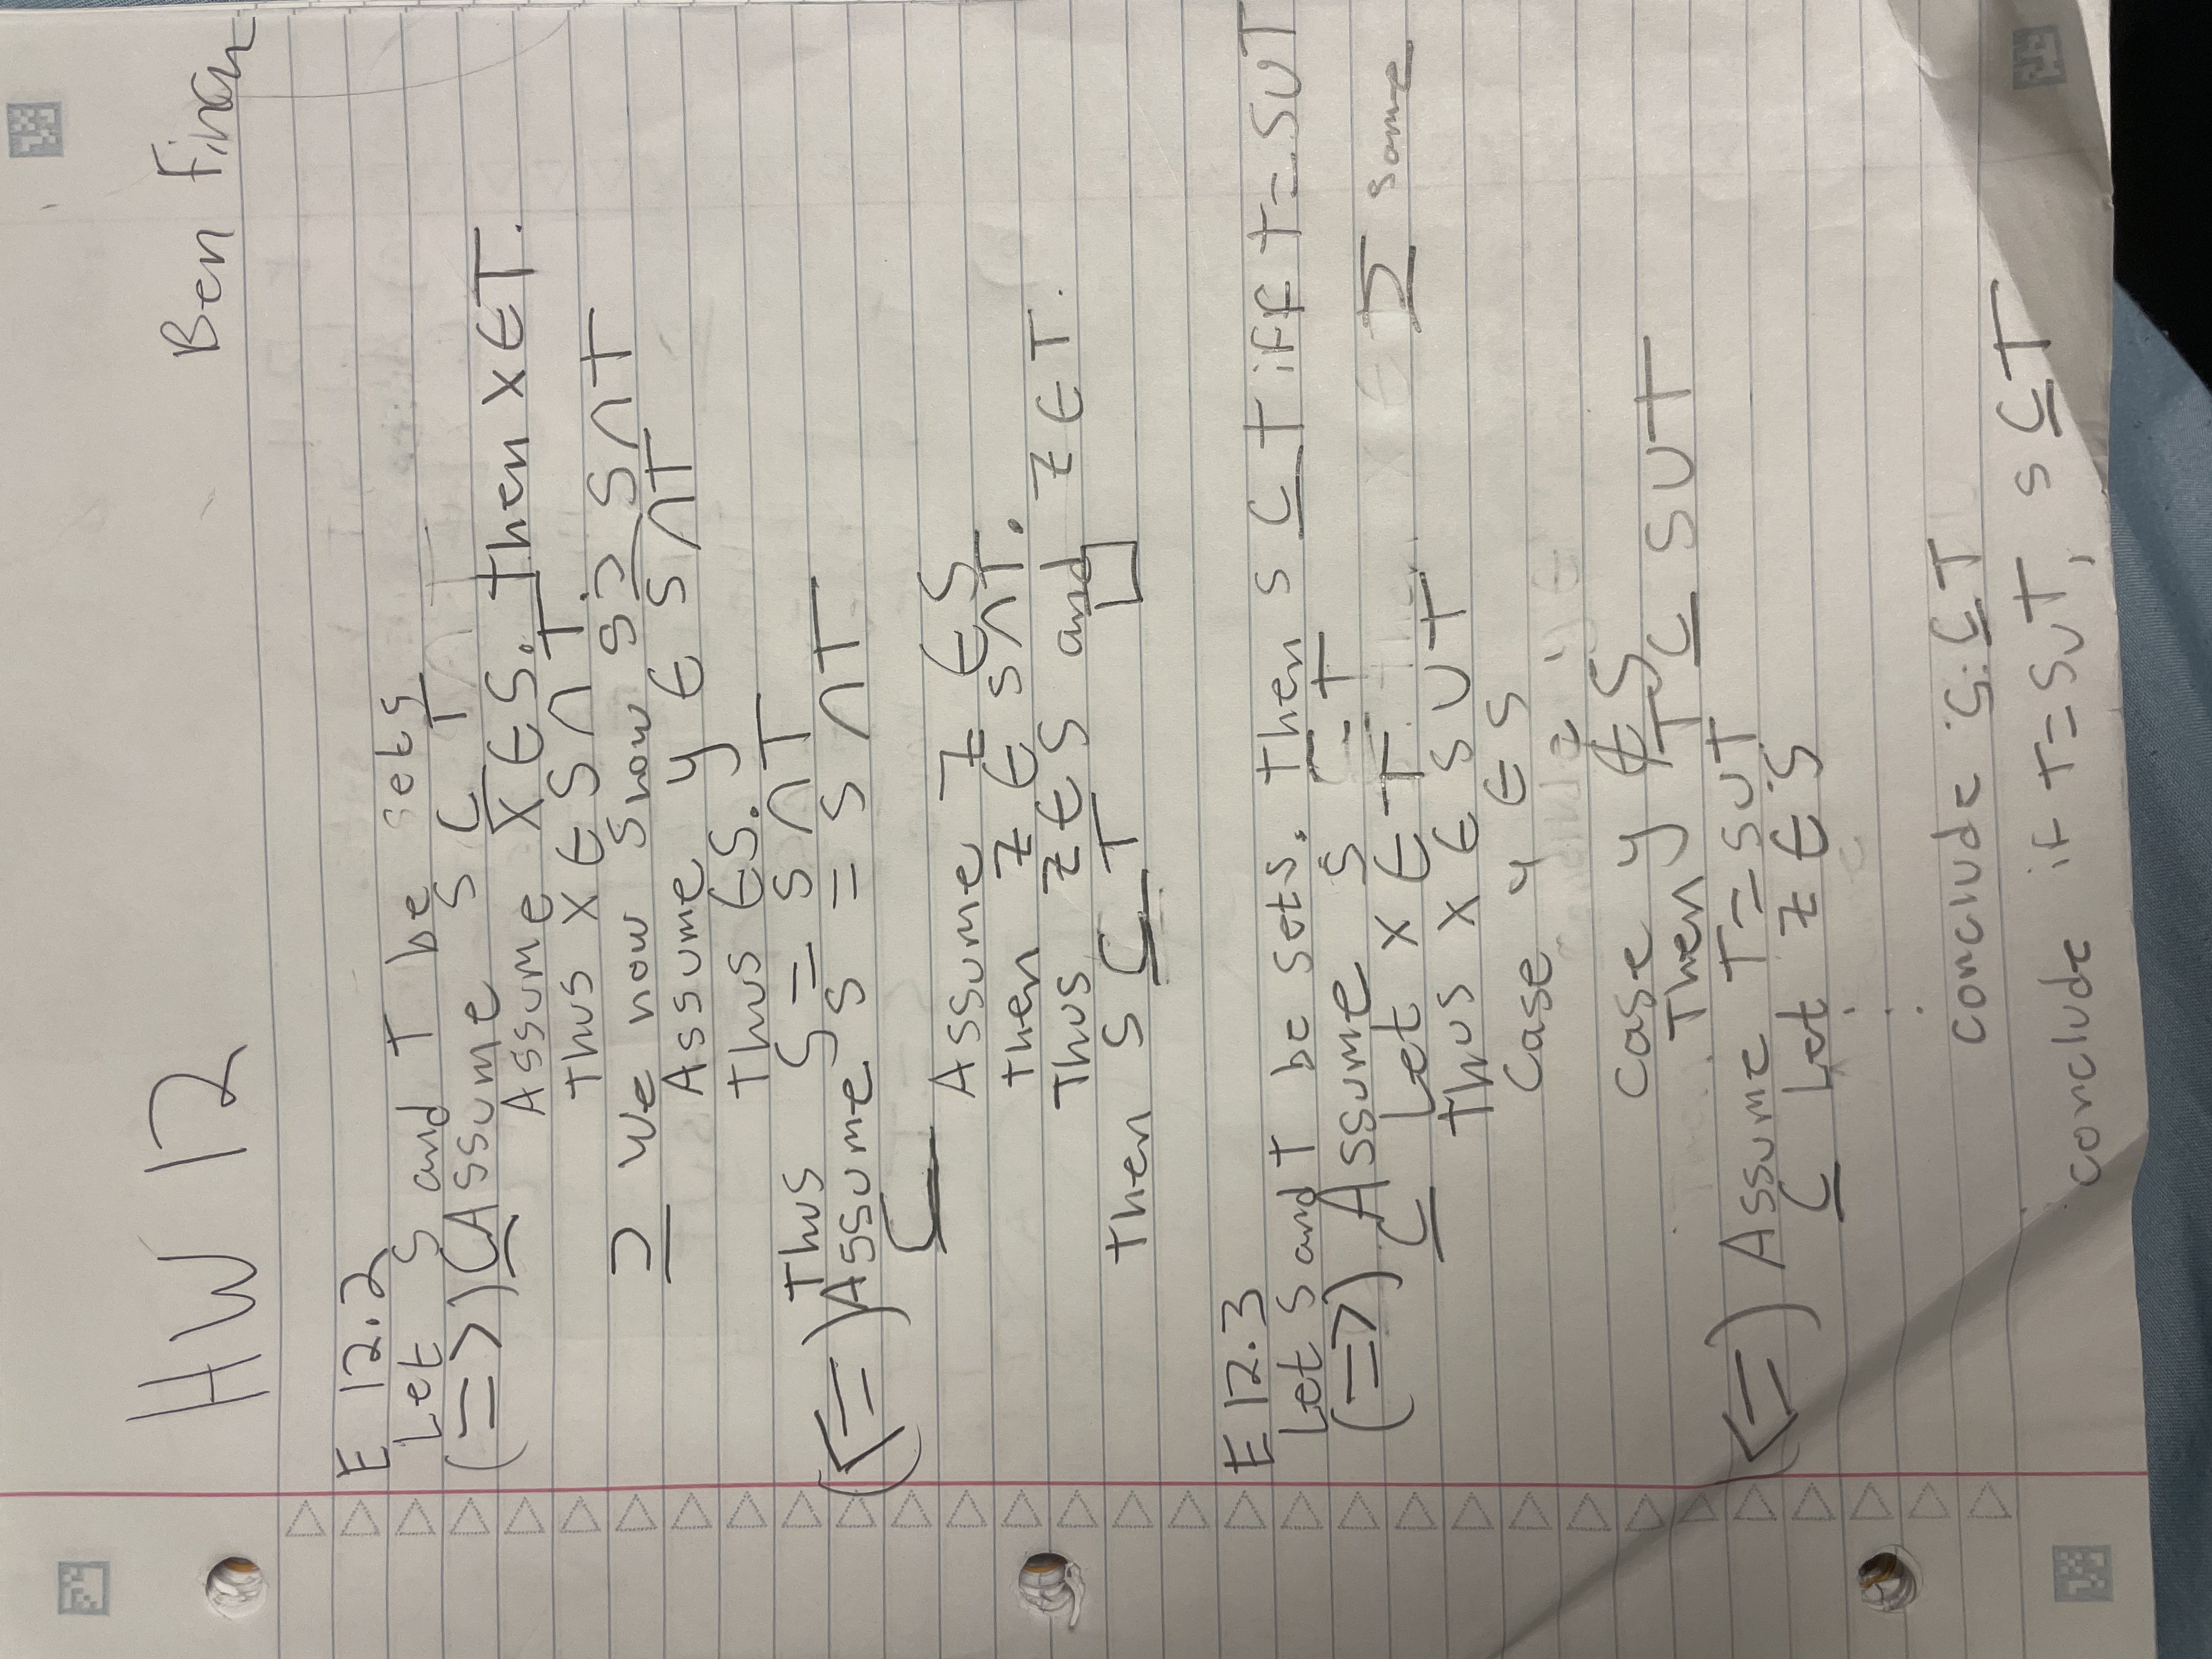 HW 12 Ben Finan
E 12.2
Let S and T be sets
(=>) Assume S ⊆ T
⊆ Assume x ∈ S. Then x ∈ T.
Thus x ∈ S ∩ T.
⊇ We now show S ⊇ S ∩ T
Assume y ∈ S ∩ T
Thus ∈ S.
Thus S = S ∩ T
(<=) Assume S = S ∩ T
⊆ Assume z ∈ S
Then z ∈ S ∩ T.
Thus z ∈ S and z ∈ T.
Then S ⊆ T □
E 12.3
Let S and T be sets. Then S ⊆ T iff T = S ∪ T
(=>) Assume S ⊆ T
⊆ Let x ∈ T ⊇ some
Thus x ∈ S ∪ T
Case y ∈ S
Case y ∉ S
Then T ⊆ S ∪ T
(<=) Assume T = S ∪ T
⊆ Let z ∈ S
⋮
conclude S ⊆ T
conclude if T = S ∪ T, S ⊆ T